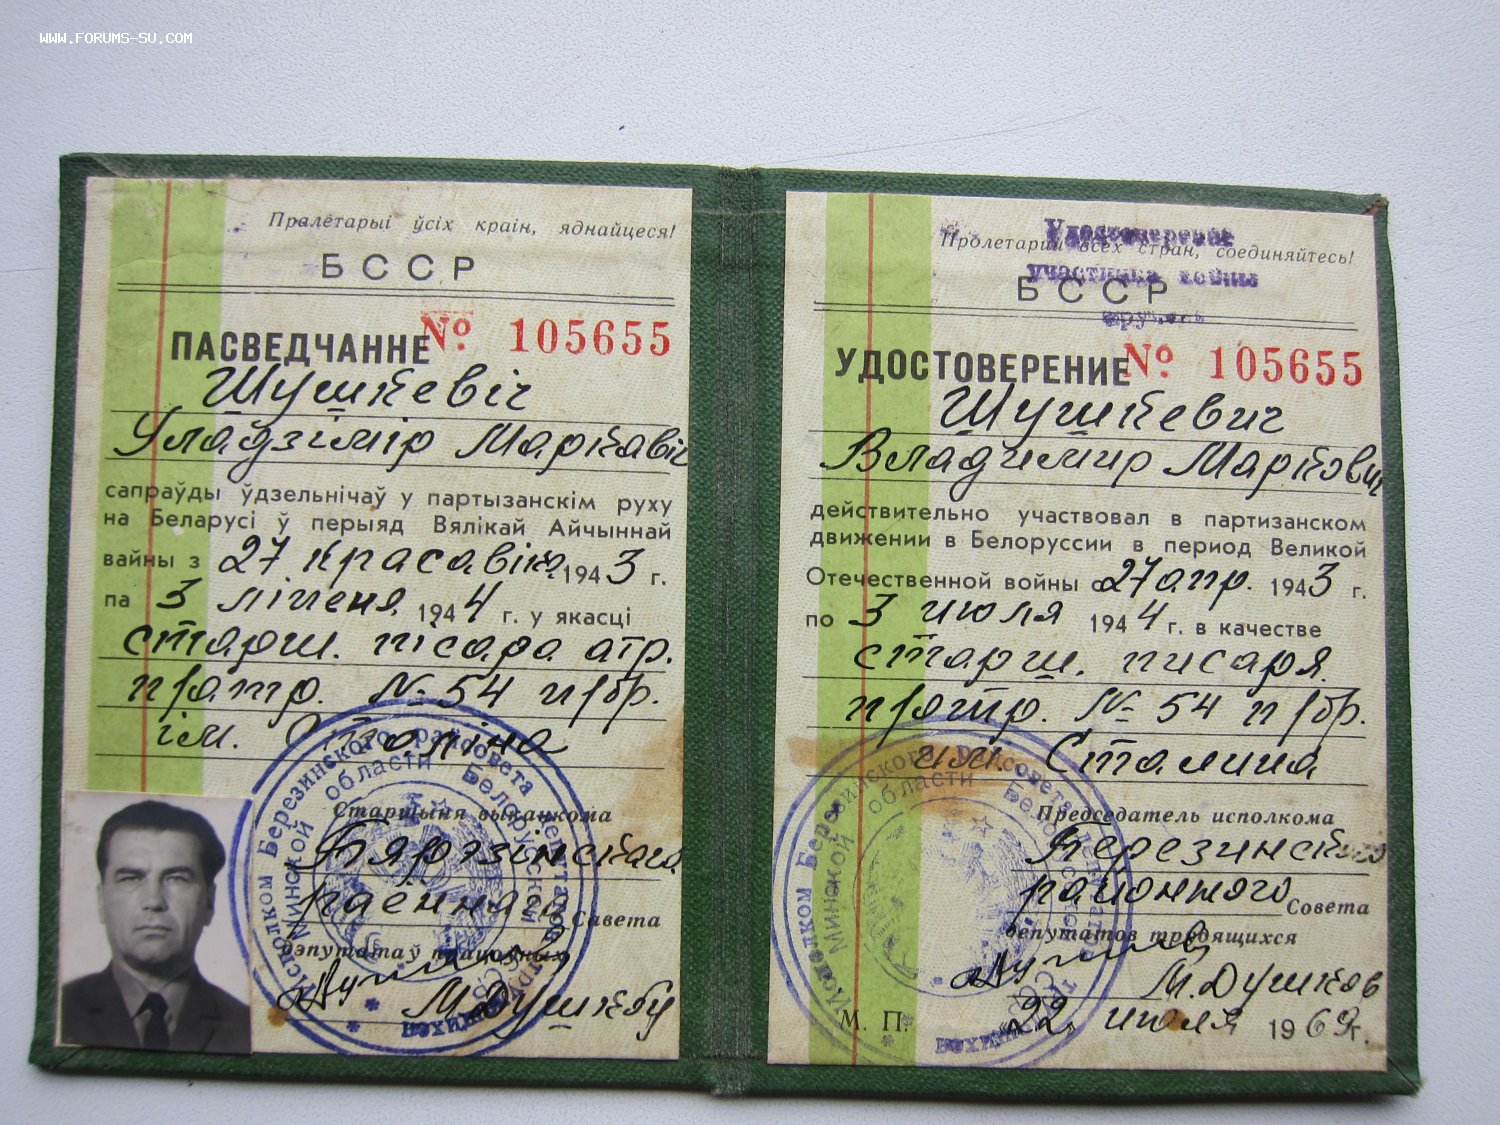 WWW.FORUMS-SU.COM
Пралетарыі ўсіх краін, яднайцеся!
БССР
ПАСВЕДЧАННЕ № 105655
Шушкевіч
Уладзімір Маркавіч
сапраўды ўдзельнічаў у партызанскім руху
на Беларусі ў перыяд Вялікай Айчыннай
вайны з 27 красавіка 1943 г.
па 3 ліпеня 1944 г. у якасці
старш. пісара атр.
п/атр. № 54 п/бр.
ім. Сталіна
Старшыня выканкома
Бярэзінскага
раённага Савета
дэпутатаў працоўных
М. Душкоў
Удостоверение
участника войны
Пролетарии всех стран, соединяйтесь!
БССР
УДОСТОВЕРЕНИЕ № 105655
Шушкевич
Владимир Маркович
действительно участвовал в партизанском
движении в Белоруссии в период Великой
Отечественной войны с 27 апр. 1943 г.
по 3 июля 1944 г. в качестве
старш. писаря
п/отр. № 54 п/бр.
им. Сталина
Председатель исполкома
Березинского
районного Совета
депутатов трудящихся
М. Душков
М. П. 22 июля 1969 г.
Исполком Березинского райсовета депутатов трудящихся
Минской области Белорусской ССР